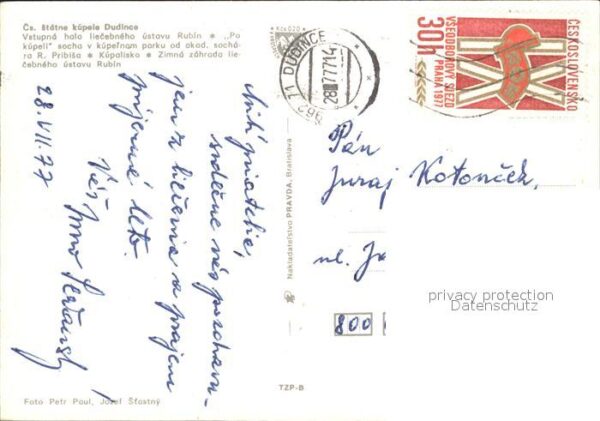 Čs. štátne kúpele Dudince
Vstupná hala liečebného ústavu Rubín * „Po
kúpeli" socha v kúpeľnom parku od akad. sochá-
ra R. Pribiša * Kúpalisko * Zimná záhrada lie-
čebného ústavu Rubín
Milí priatelia,
srdečne vás pozdravu-
jem z liečenia a prajem
príjemné leto.
Váš
28.VII.77
Foto Petr Paul, Jozef Šťastný
Nakladateľstvo PRAVDA, Bratislava
TZP-B
962 71 DUDINCE
28.7.77-14
ČESKOSLOVENSKO
VŠEODBOROVÝ SJEZD
PRAHA 1977
30h
Pán
Juraj Kotonček,
ul. Ja
800
privacy protection
Datenschutz